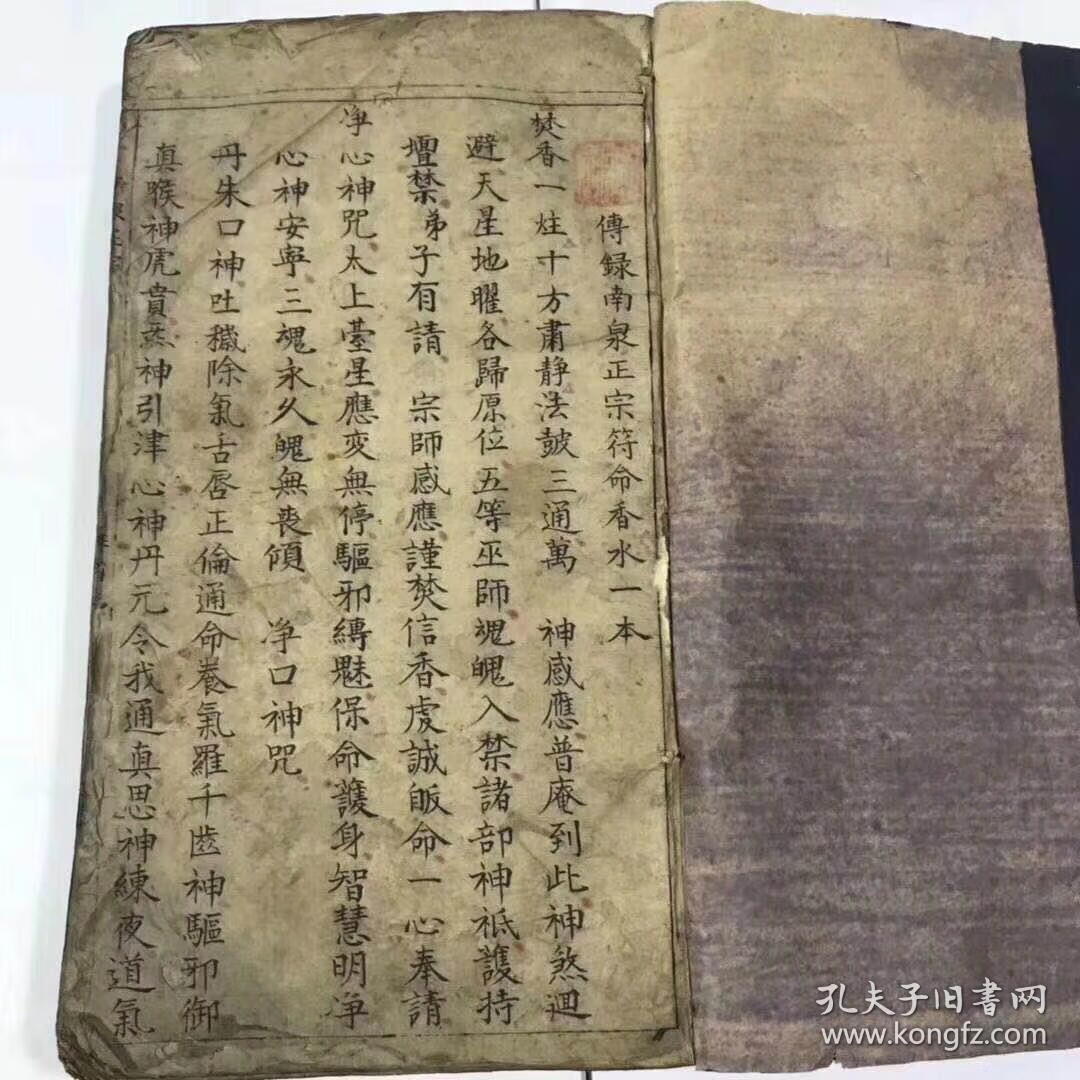 傳録南泉正宗符命香水一本
焚香一炷十方肅静法皷三通萬　神感應普庵到此神煞迴
避天星地曜各歸原位五等巫師魂魄入禁諸部神祇護持
壇禁弟子有請　宗師感應謹焚信香虔誠皈命一心奉請
净心神咒太上臺星應变無停驅邪縛魅保命護身智慧明净
心神安寧三魂永久魄無喪傾　净口神咒
丹朱口神吐穢除氣舌唇正倫通命養氣羅千齒神驅邪衛
真喉神虎賁炁神引津心神丹元令我通真思神練夜道氣
孔夫子旧書网
www.kongfz.com